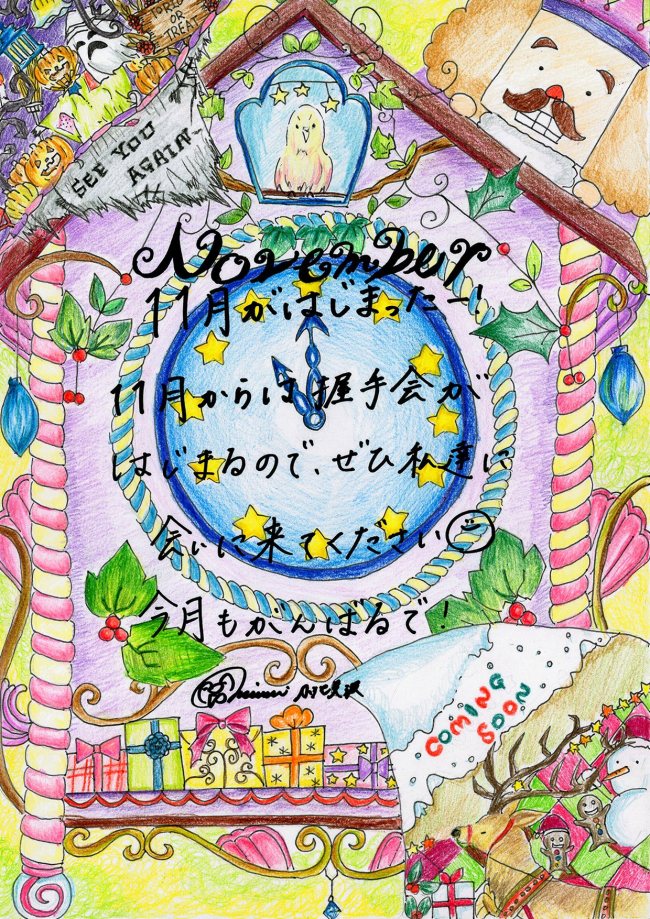 TRICK OR TREAT
SEE YOU
AGAIN~
November
11月がはじまったー!
11月からは握手会が
はじまるので、ぜひ私達に
会いに来てください
今月もがんばるで!
COMING
SOON